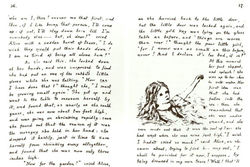 16.
who am I, then? answer me that first, and
then, if I like being that person, I'll come
up: if not, I'll stay down here till I'm
somebody else— but, oh dear!" cried
Alice with a sudden burst of tears, "I do
wish they would put their heads down!
I am so tired of being all alone here!"
As she said this, she looked down
at her hands, and was surprised to find
she had put on one of the rabbit's little
gloves while she was talking. "How can
I have done that?" thought she, "I must
be growing small again." She got up and
went to the table to measure herself by
it, and found that, as nearly as she could
guess, she was now about two feet high,
and was going on shrinking rapidly: soon
she found out that the reason of it was
the nosegay she held in her hand: she
dropped it hastily, just in time to save
herself from shrinking away altogether,
and found that she was now only three
inches high.
"Now for the garden!" cried Alice,
17.
as she hurried back to the little door,
but the little door was locked again, and
the little gold key was lying on the glass
table as before, and "things are worse
than ever!" thought the poor little girl,
"for I never was as small as this before,
never! And I declare it's too bad, it is!"
At this moment
her foot slipped,
and splash! she
was up to her chin
in salt water. Her
first idea was
that she had
fallen into the sea: then she
and she soon made out that it was the pool of
had wept when she was nine feet high. "I wish I
hadn't cried so much!" said Alice, as she
about, trying to find her way out, "I
shall be punished for it now, I suppose, by
being drowned in my own tears! Well! that'll